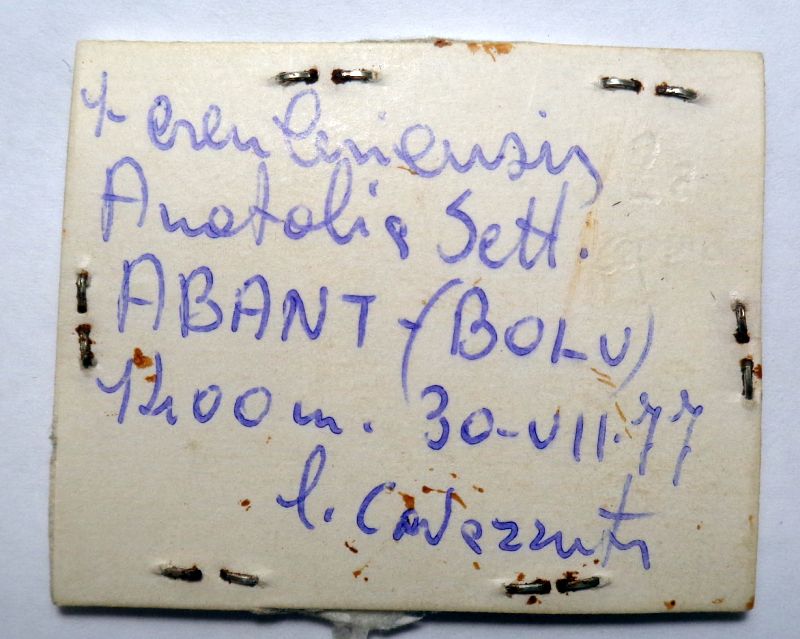 Anatolia Sett.
ABANT-(BOLU)
1200 m. 30-VII-77
l. Cavazzuti